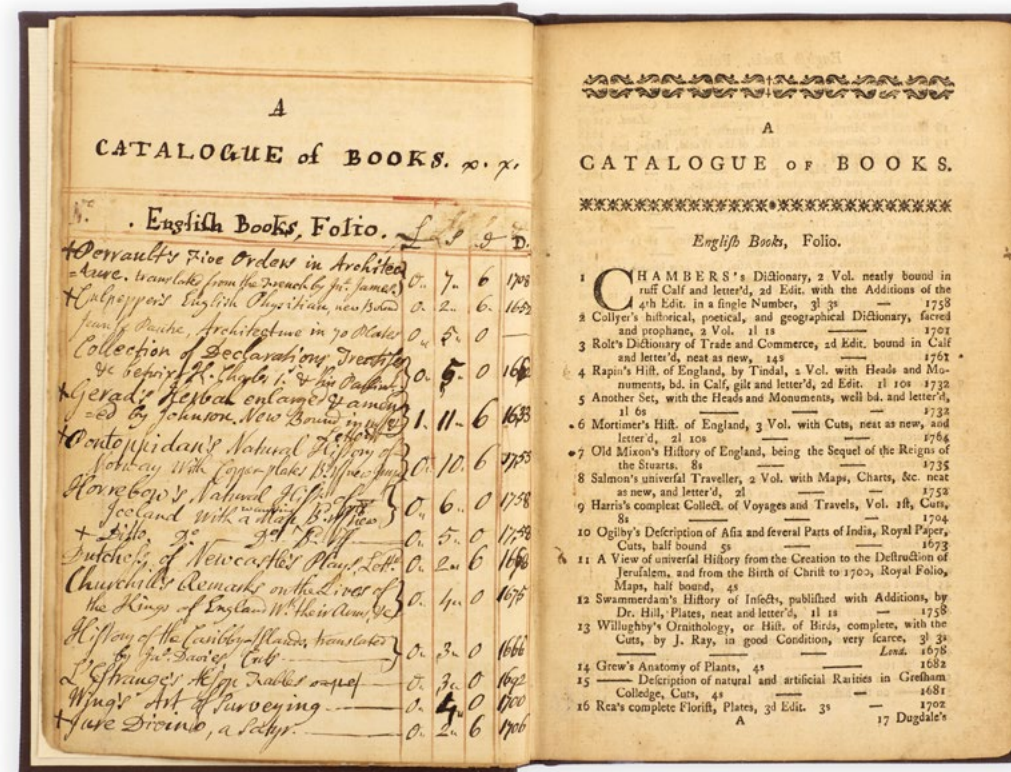 A
CATALOGUE of BOOKS.
No.
English Books, Folio. £ s d D.
+Perrault's Five Orders in Architec
=ture. translated from the French by Jn. James 0 7 6 1708
+Culpepper's English Physitian, new Bound 0 2 6 1652
Architecture in 70 Plates 0 5 0
Collection of Declarations, Treatise
&c betwixt K. Charles 1st. & his Parliamt. 0 5 0
+Gerad's Herbal enlarged & amend
=ed by Johnson. New Bound in 1 11 6 1633
+Pontoppidan's Natural History of
Norway with Copper plates 0 10 6
Horrebow's Natural History of
Iceland With a Map 0 6 0 1758
+ Ditto Do. Do. 0 5 0 1758
Dutchess of Newcastle's Plays, Lettd. 0 2 6
Churchill's Remarks on the Lives of
the Kings of England Wt. their Arms, &c 0 4 0 1675
History of the Caribby=Islands, translated
by Jn. Davies 0 3 0 1666
L'Estrange's Æsop Fables 0 3 0 1692
Wing's Art of Surveying 0 4 0 1700
+Jure Divino, a Satyr. 0 2 6 1706
A
CATALOGUE OF BOOKS.
English Books, Folio.
1 CHAMBERS's Dictionary, 2 Vol. neatly bound in
ruff Calf and letter'd, 2d Edit. with the Additions of the
4th Edit. in a single Number, 3l 3s — 1758
2 Collyer's historical, poetical, and geographical Dictionary, sacred
and prophane, 2 Vol. 1l 1s — 1701
3 Rolt's Dictionary of Trade and Commerce, 2d Edit. bound in Calf
and letter'd, neat as new, 14s — 1761
4 Rapin's Hist. of England, by Tindal, 2 Vol. with Heads and Mo-
numents, bd. in Calf, gilt and letter'd, 2d Edit. 1l 10s 1732
5 Another Set, with the Heads and Monuments, well bd. and letter'd,
1l 6s — — — 1732
6 Mortimer's Hist. of England, 3 Vol. with Cuts, neat as new, and
letter'd, 2l 10s — — 1764
7 Old Mixon's History of England, being the Sequel of the Reigns of
the Stuarts. 8s — — 1735
8 Salmon's universal Traveller, 2 Vol. with Maps, Charts, &c. neat
as new, and letter'd, 2l — — 1752
9 Harris's compleat Collect. of Voyages and Travels, Vol. 1st, Cuts,
8s — — — 1704
10 Ogilby's Description of Asia and several Parts of India, Royal Paper,
Cuts, half bound 5s — — 1673
11 A View of universal History from the Creation to the Destruction of
Jerusalem, and from the Birth of Christ to 1700, Royal Folio,
Maps, half bound, 4s
12 Swammerdam's History of Insects, published with Additions, by
Dr. Hill, Plates, neat and letter'd, 1l 1s — 1758
13 Willughby's Ornithology, or Hist. of Birds, complete, with the
Cuts, by J. Ray, in good Condition, very scarce, 3l 3s
— — — Lond. 1678
14 Grew's Anatomy of Plants, 4s — 1682
15 — Description of natural and artificial Rarities in Gresham
Colledge, Cuts, 4s — — 1681
16 Rea's complete Florist, Plates, 3d Edit. 3s — 1702
A 17 Dugdale's